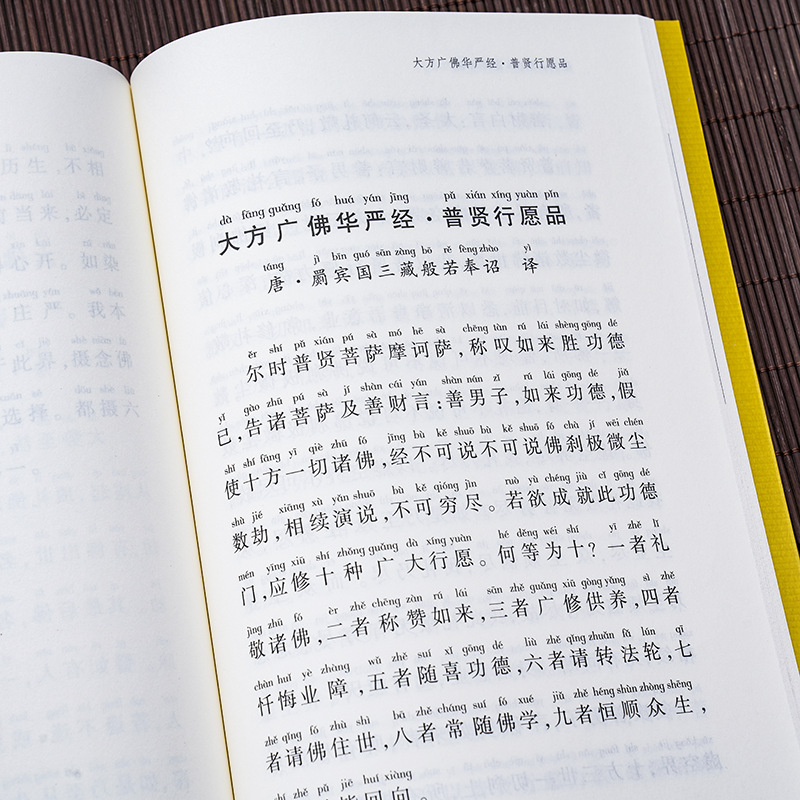 历生,不相
当来,必定
心开。如染
庄严。我本
于此界,摄念佛
选择。都摄六
一。
大方广佛华严经·普贤行愿品
dà fāng guǎng fó huá yán jīng pǔ xián xíng yuàn pǐn
大方广佛华严经·普贤行愿品
táng jì bīn guó sān zàng bō rě fèng zhào yì
唐·罽宾国三藏般若奉诏 译
ěr shí pǔ xián pú sà mó hē sà chēng tàn rú lái shèng gōng dé
尔时普贤菩萨摩诃萨,称叹如来胜功德
yǐ gào zhū pú sà jí shàn cái yán shàn nán zǐ rú lái gōng dé jiǎ
已,告诸菩萨及善财言:善男子,如来功德,假
shǐ shí fāng yī qiè zhū fó jīng bù kě shuō bù kě shuō fó chà jí wēi chén
使十方一切诸佛,经不可说不可说佛刹极微尘
shù jié xiāng xù yǎn shuō bù kě qióng jìn ruò yù chéng jiù cǐ gōng dé
数劫,相续演说,不可穷尽。若欲成就此功德
mén yīng xiū shí zhǒng guǎng dà xíng yuàn hé děng wéi shí yī zhě lǐ
门,应修十种广大行愿。何等为十?一者礼
jìng zhū fó èr zhě chēng zàn rú lái sān zhě guǎng xiū gòng yǎng sì zhě
敬诸佛,二者称赞如来,三者广修供养,四者
chàn huǐ yè zhàng wǔ zhě suí xǐ gōng dé liù zhě qǐng zhuǎn fǎ lún qī
忏悔业障,五者随喜功德,六者请转法轮,七
zhě qǐng fó zhù shì bā zhě cháng suí fó xué jiǔ zhě héng shùn zhòng shēng
者请佛住世,八者常随佛学,九者恒顺众生,
shí zhě pǔ jiē huí xiàng
回向。